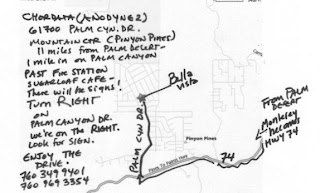 CHORDATA (ANODYNE 2)
61700 PALM CYN. DR.
MOUNTAIN CTR (PINYON PINES)
11 miles from PALM DESERT-
1 mile in on PALM CANYON
PAST FIRE STATION
SUGARLOAF CAFE-!
There will be signs!
Turn RIGHT
on
PALM CANYON DR.
we're on the RIGHT.
Look for SIGN.
ENJOY THE
DRIVE!
760 349 9401
760 969 3354
Bulla
Vista
PALM CYN DR.
Pinyon Pines
Pines To Palms Hwy
74
From PALM
DESERT
Monterey
becomes
HWY 74